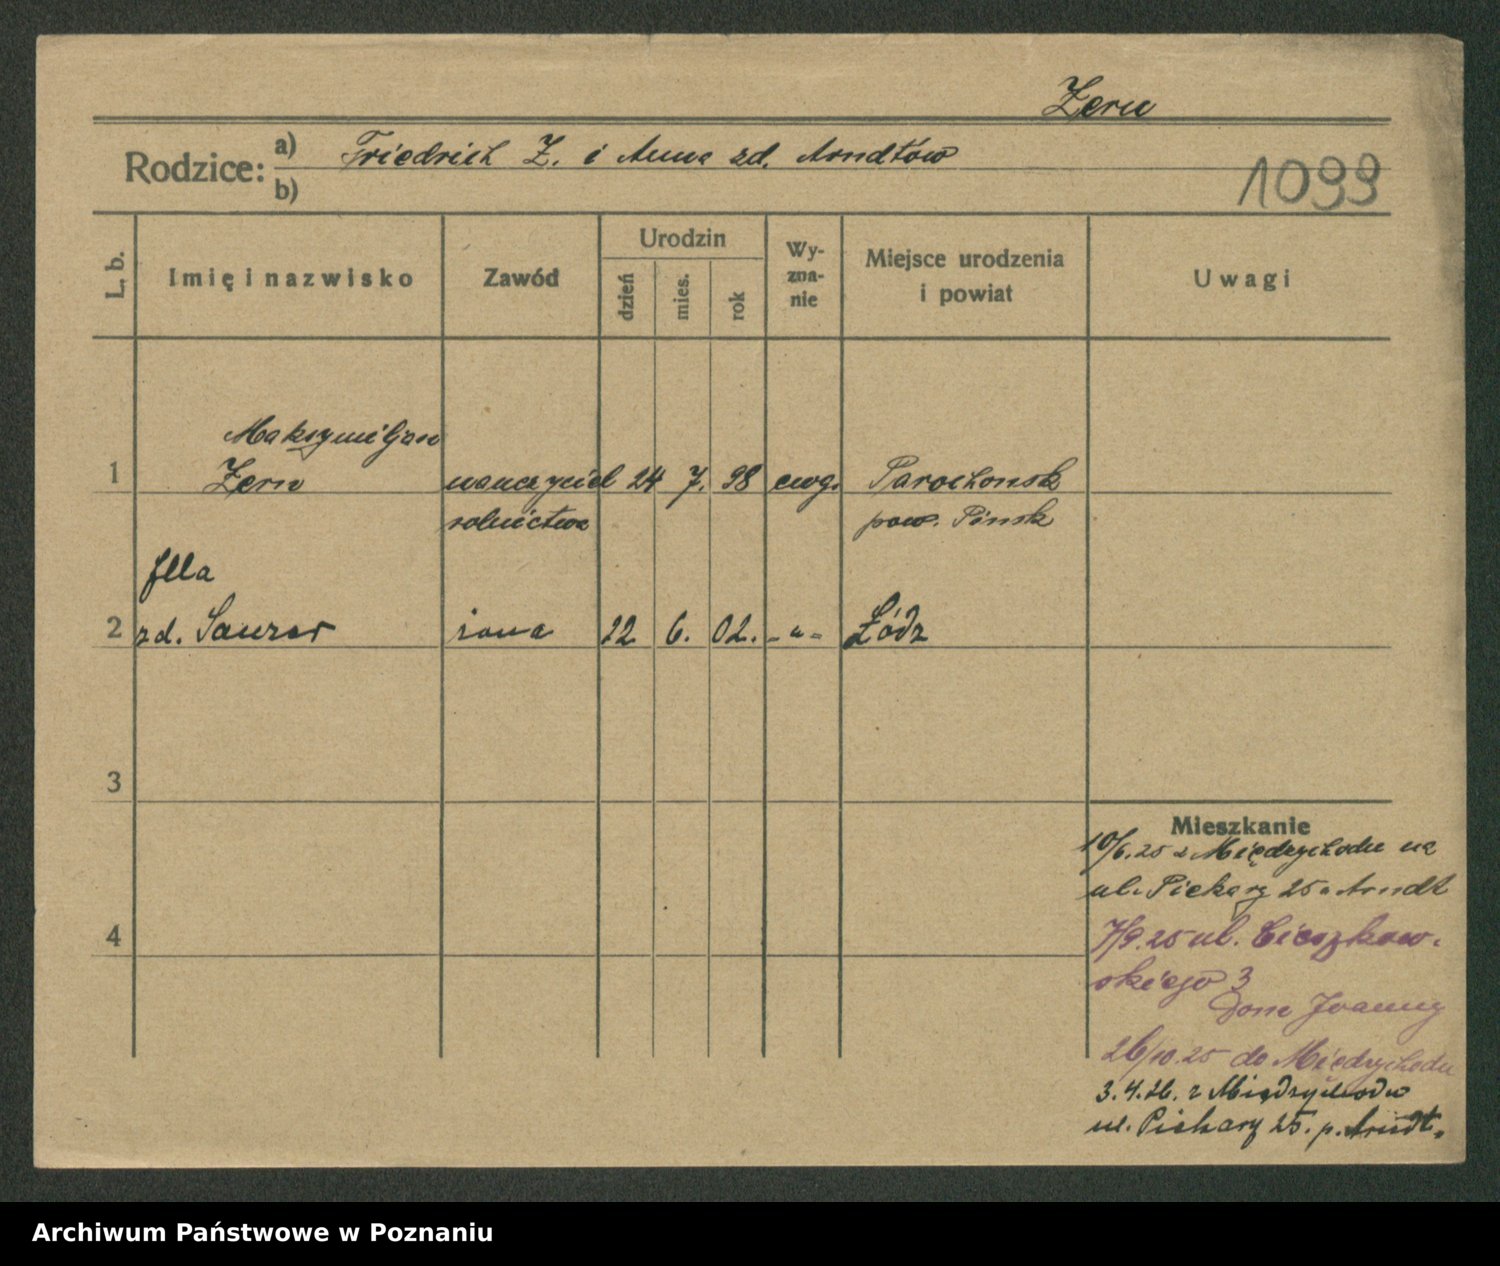 Zern
Rodzice: a) Friedrich Z. i Anna zd. Arndtów
b)
1099
L. b.
Imię i nazwisko
Zawód
Urodzin
dzień
mies.
rok
Wy-
zna-
nie
Miejsce urodzenia
i powiat
Uwagi
Maksymiljan
1 Zern nauczyciel 24 7. 98 ewg. Parochonsk
rolnictwa pow. Pinsk
Ella
2 zd. Saurer żona 22 6. 02. -"- Łódz
3
4
Mieszkanie
10/6.25 z Międzychodu na
ul. Piekary 25 Arndt
7/9.25 ul. Cieszkow-
skiego 3
26/10.25 do Międzychodu
3.4.26. z Międzychodu
ul. Piekary 25. p. Arndt.
Archiwum Państwowe w Poznaniu